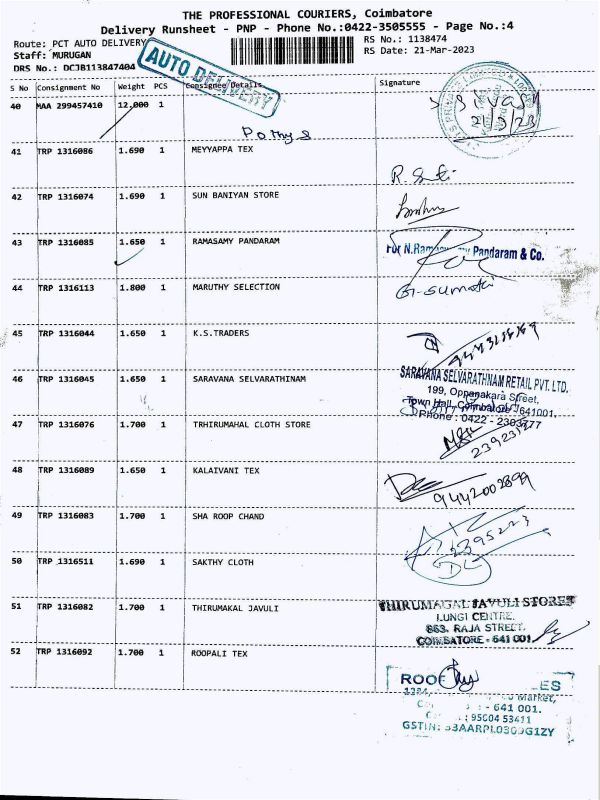 THE PROFESSIONAL COURIERS, Coimbatore
Delivery Runsheet - PNP - Phone No.:0422-3505555 - Page No.:4
Route: PCT AUTO DELIVERY
RS No.: 1138474
Staff: MURUGAN
RS Date: 21-Mar-2023
DRS No.: DCJB113847404
AUTO DELIVERY
S No Consignment No Weight PCS Consignee Details Signature
40 MAA 299457410 12.000 1
Pothys
21/3/23
41 TRP 1316086 1.690 1 MEYYAPPA TEX
42 TRP 1316074 1.690 1 SUN BANIYAN STORE
43 TRP 1316085 1.650 1 RAMASAMY PANDARAM
Pandaram & Co.
44 TRP 1316113 1.800 1 MARUTHY SELECTION
G. Sumathi
45 TRP 1316044 1.650 1 K.S.TRADERS
46 TRP 1316045 1.650 1 SARAVANA SELVARATHINAM
SARAVANA SELVARATHNAM RETAIL PVT. LTD.
199, Oppanakara Street,
Town Hall, Coimbatore - 641001.
Phone : 0422 - 2303777
47 TRP 1316076 1.700 1 TRHIRUMAHAL CLOTH STORE
48 TRP 1316089 1.650 1 KALAIVANI TEX
9442002899
49 TRP 1316083 1.700 1 SHA ROOP CHAND
2395223
50 TRP 1316511 1.690 1 SAKTHY CLOTH
51 TRP 1316082 1.700 1 THIRUMAKAL JAVULI
THIRUMAGAL JAVULI STORES
LUNGI CENTRE.
863, RAJA STREET.
COIMBATORE - 641 001.
52 TRP 1316092 1.700 1 ROOPALI TEX
Market,
- 641 001.
: 95004 53411